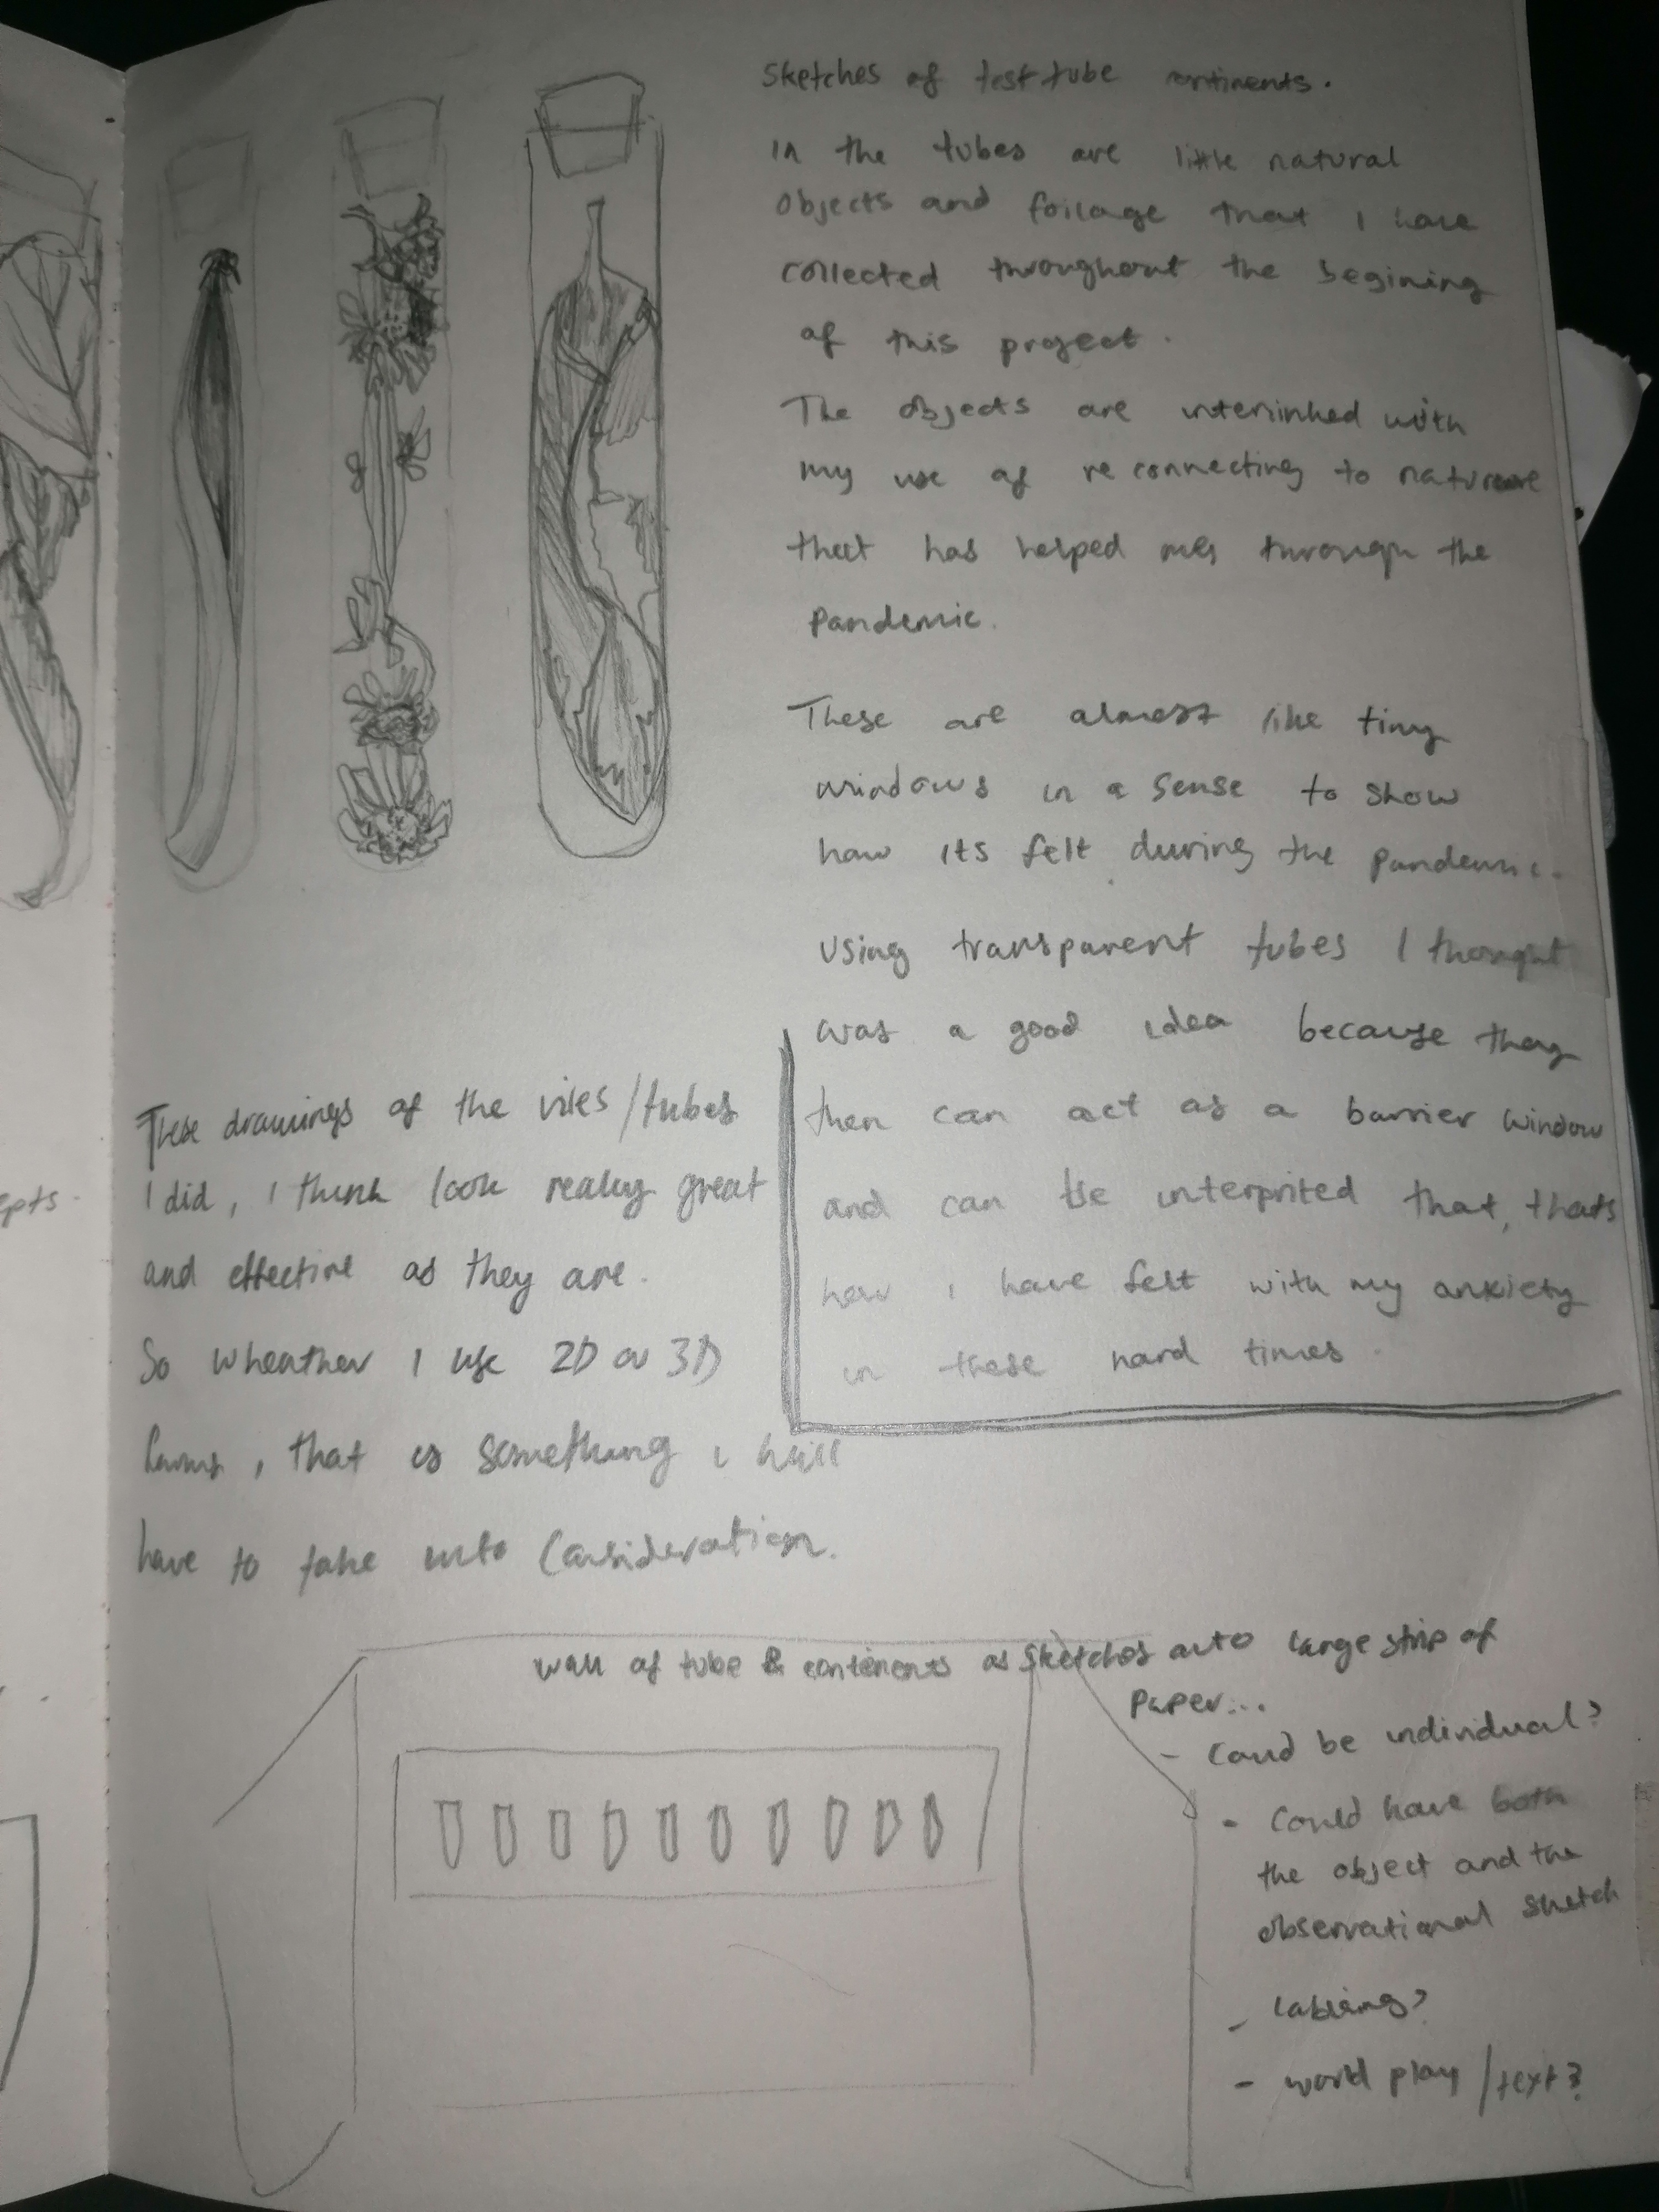 Sketches of test tube contiments.
In the tubes are little natural
objects and foilage that I have
collected throughout the begining
of this project.
The objects are interlinked with
my use of reconnecting to nature
that has helped me through the
Pandemic.
These are almost like tiny
windows in a sense to show
how its felt during the pandemic.
Using transparent tubes I thought
was a good idea because they
then can act as a barrier window
and can be interprited that, thats
how I have felt with my anxiety
in these hard times.
These drawings of the viles/tubes
I did, I think look really great
and effective as they are.
So wheather I use 2D or 3D
forms, that is something i will
have to take into consideration.
epts.
Wall of tube & contenents as sketches onto large strip of
Paper...
- Could be individual?
- Could have both
the object and the
observational sketch
- Labling?
- world play / text?